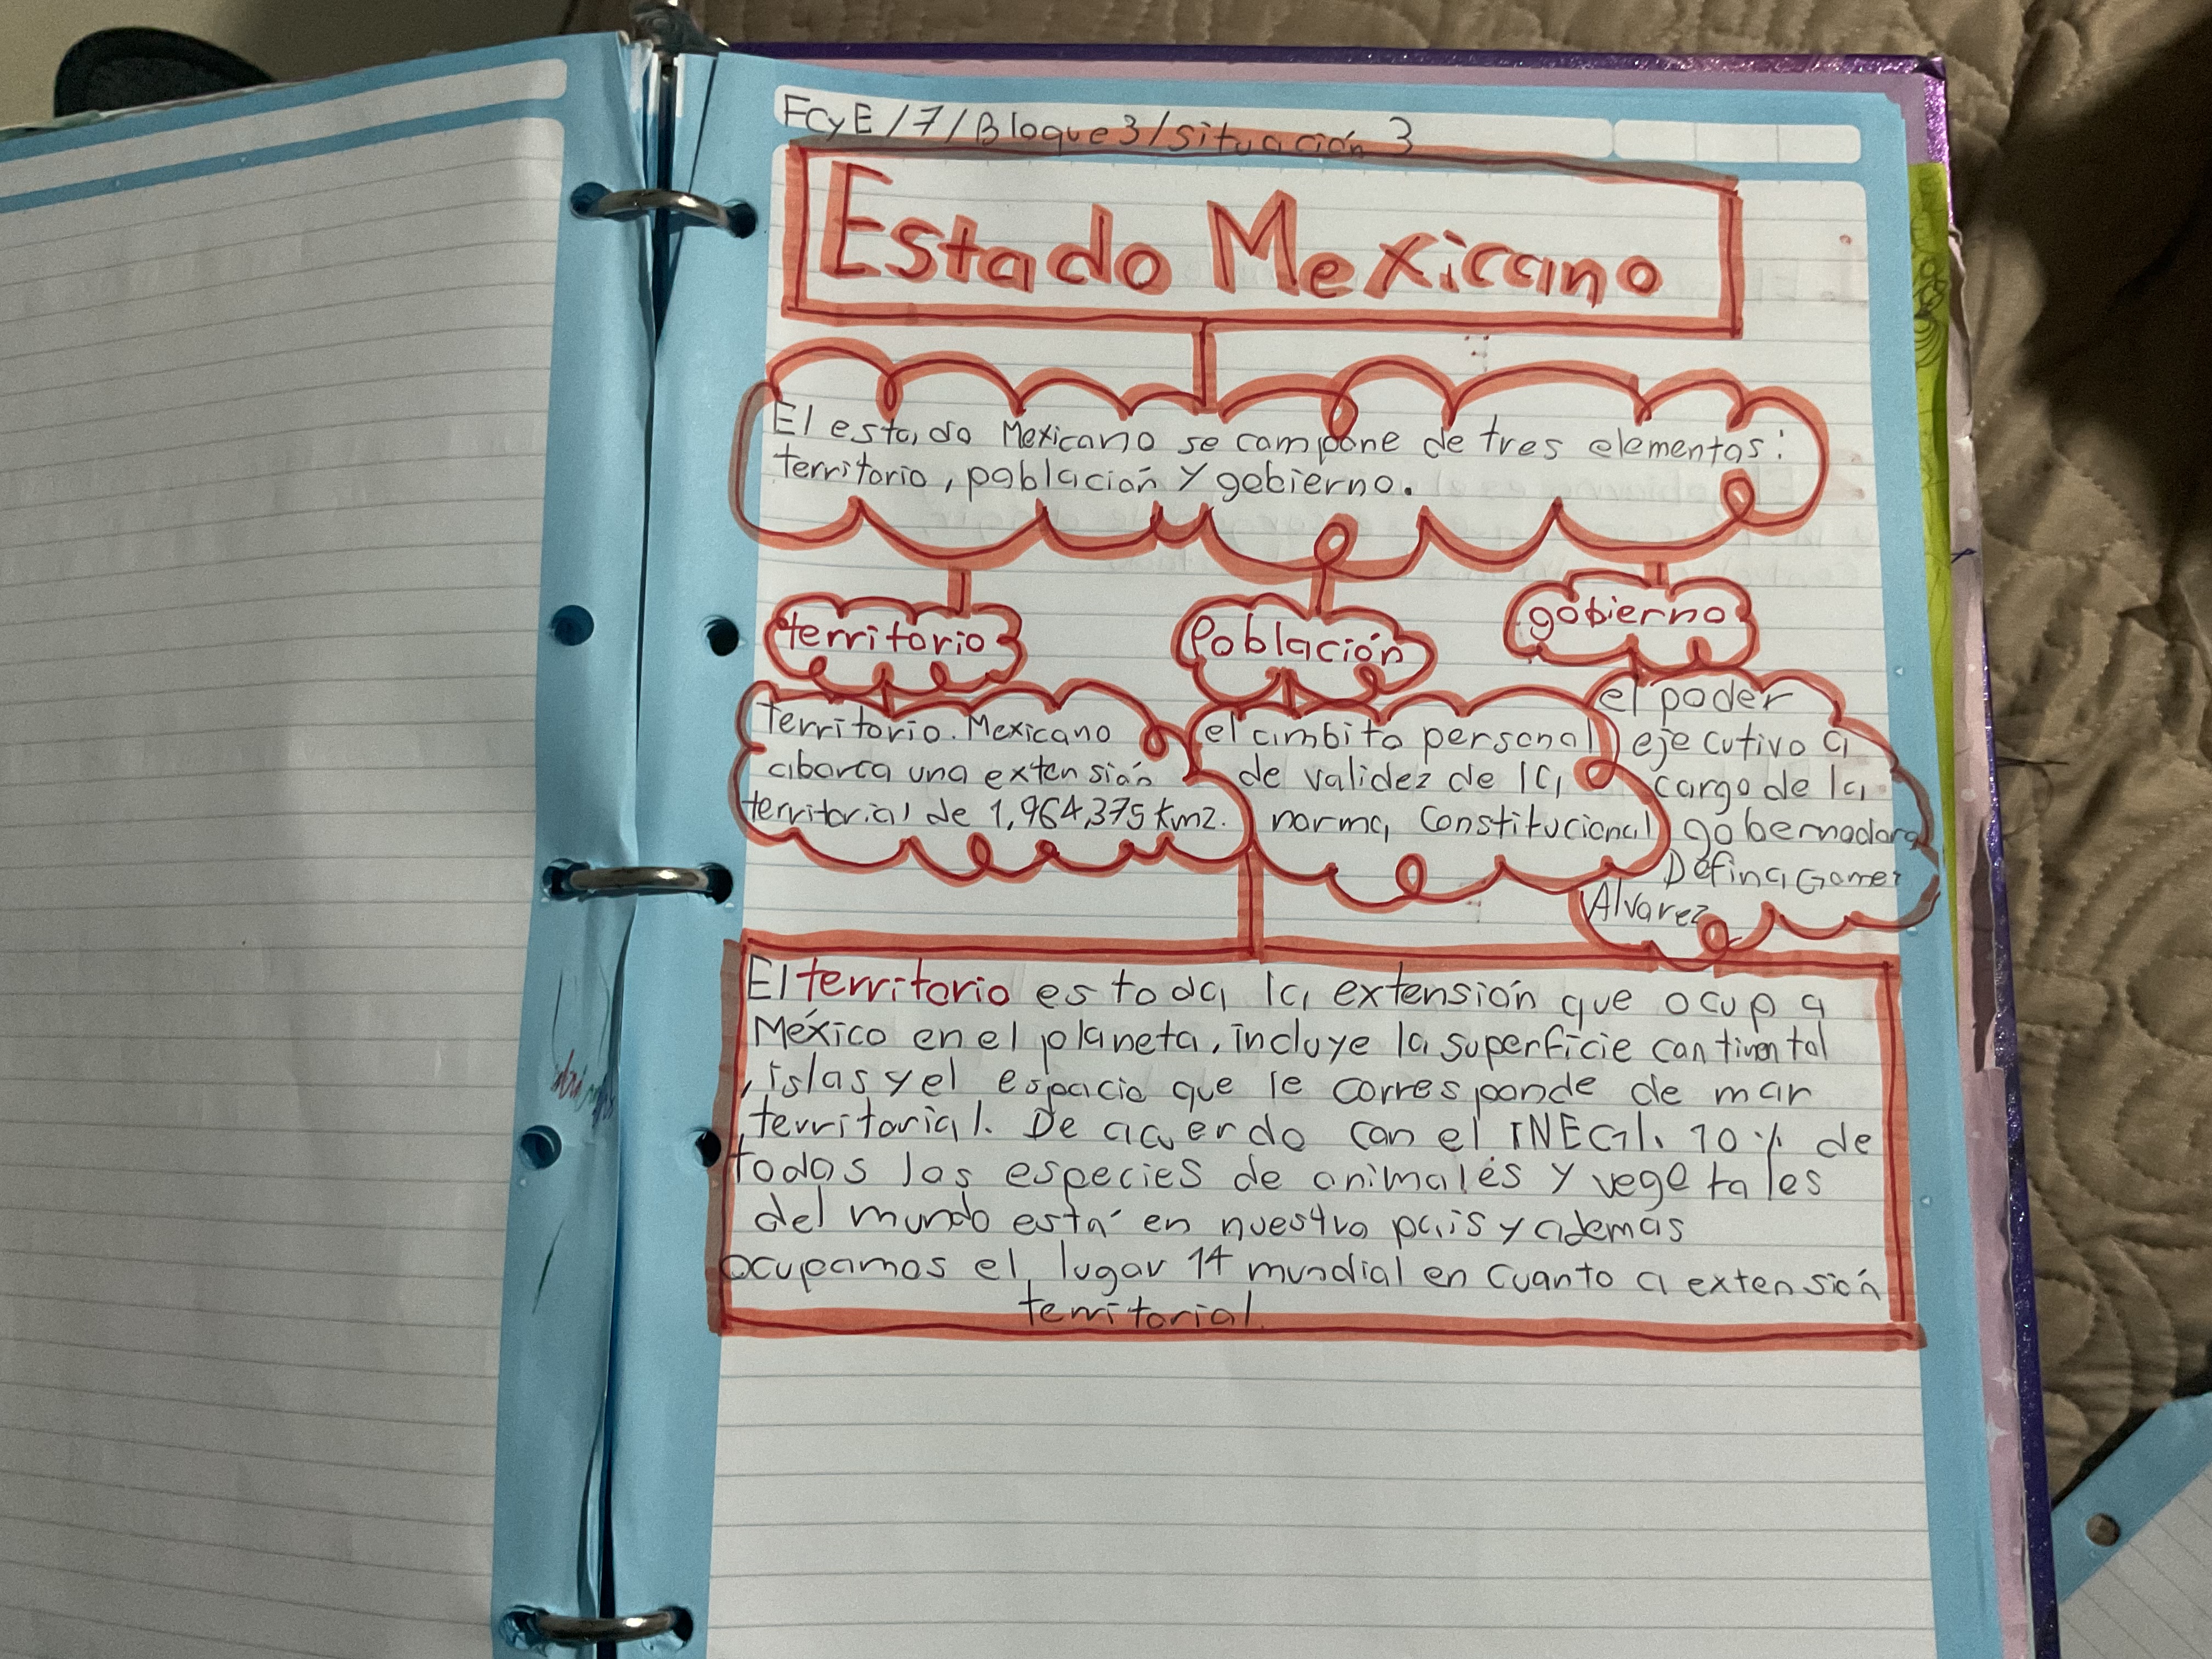 FCyE/7/Bloque3/Situación 3
Estado Mexicano
El estado Mexicano se compone de tres elementos:
territorio, población y gobierno.
territorio
Territorio. Mexicano
abarca una extensión
territorial de 1,964,375 Km2.
Población
el ambito personal
de validez de la
norma Constitucional
gobierno
el poder
ejecutivo a
cargo de la
gobernadora
Defina Gomez
Alvarez
El territorio es toda la extensión que ocupa
México en el planeta, incluye la superficie continental
, islas y el espacio que le corresponde de mar
territorial. De acuerdo con el INEGI. 10% de
todas las especies de animales y vegetales
del mundo está en nuestro país y además
ocupamos el lugar 14 mundial en cuanto a extensión
territorial.